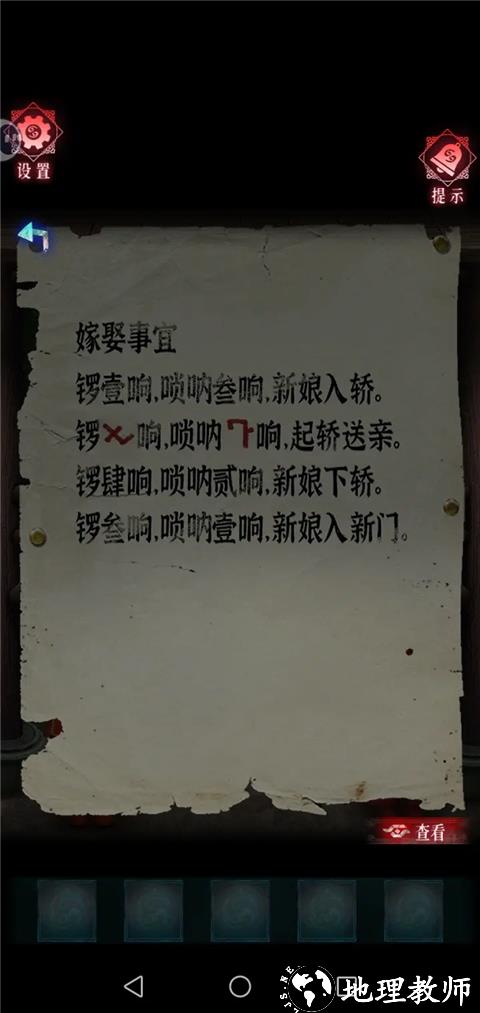 设置
提示
嫁娶事宜
锣壹响,唢呐叁响,新娘入轿。
锣x响,唢呐7响,起轿送亲。
锣肆响,唢呐贰响,新娘下轿。
锣叁响,唢呐壹响,新娘入新门。
查看
地理教师